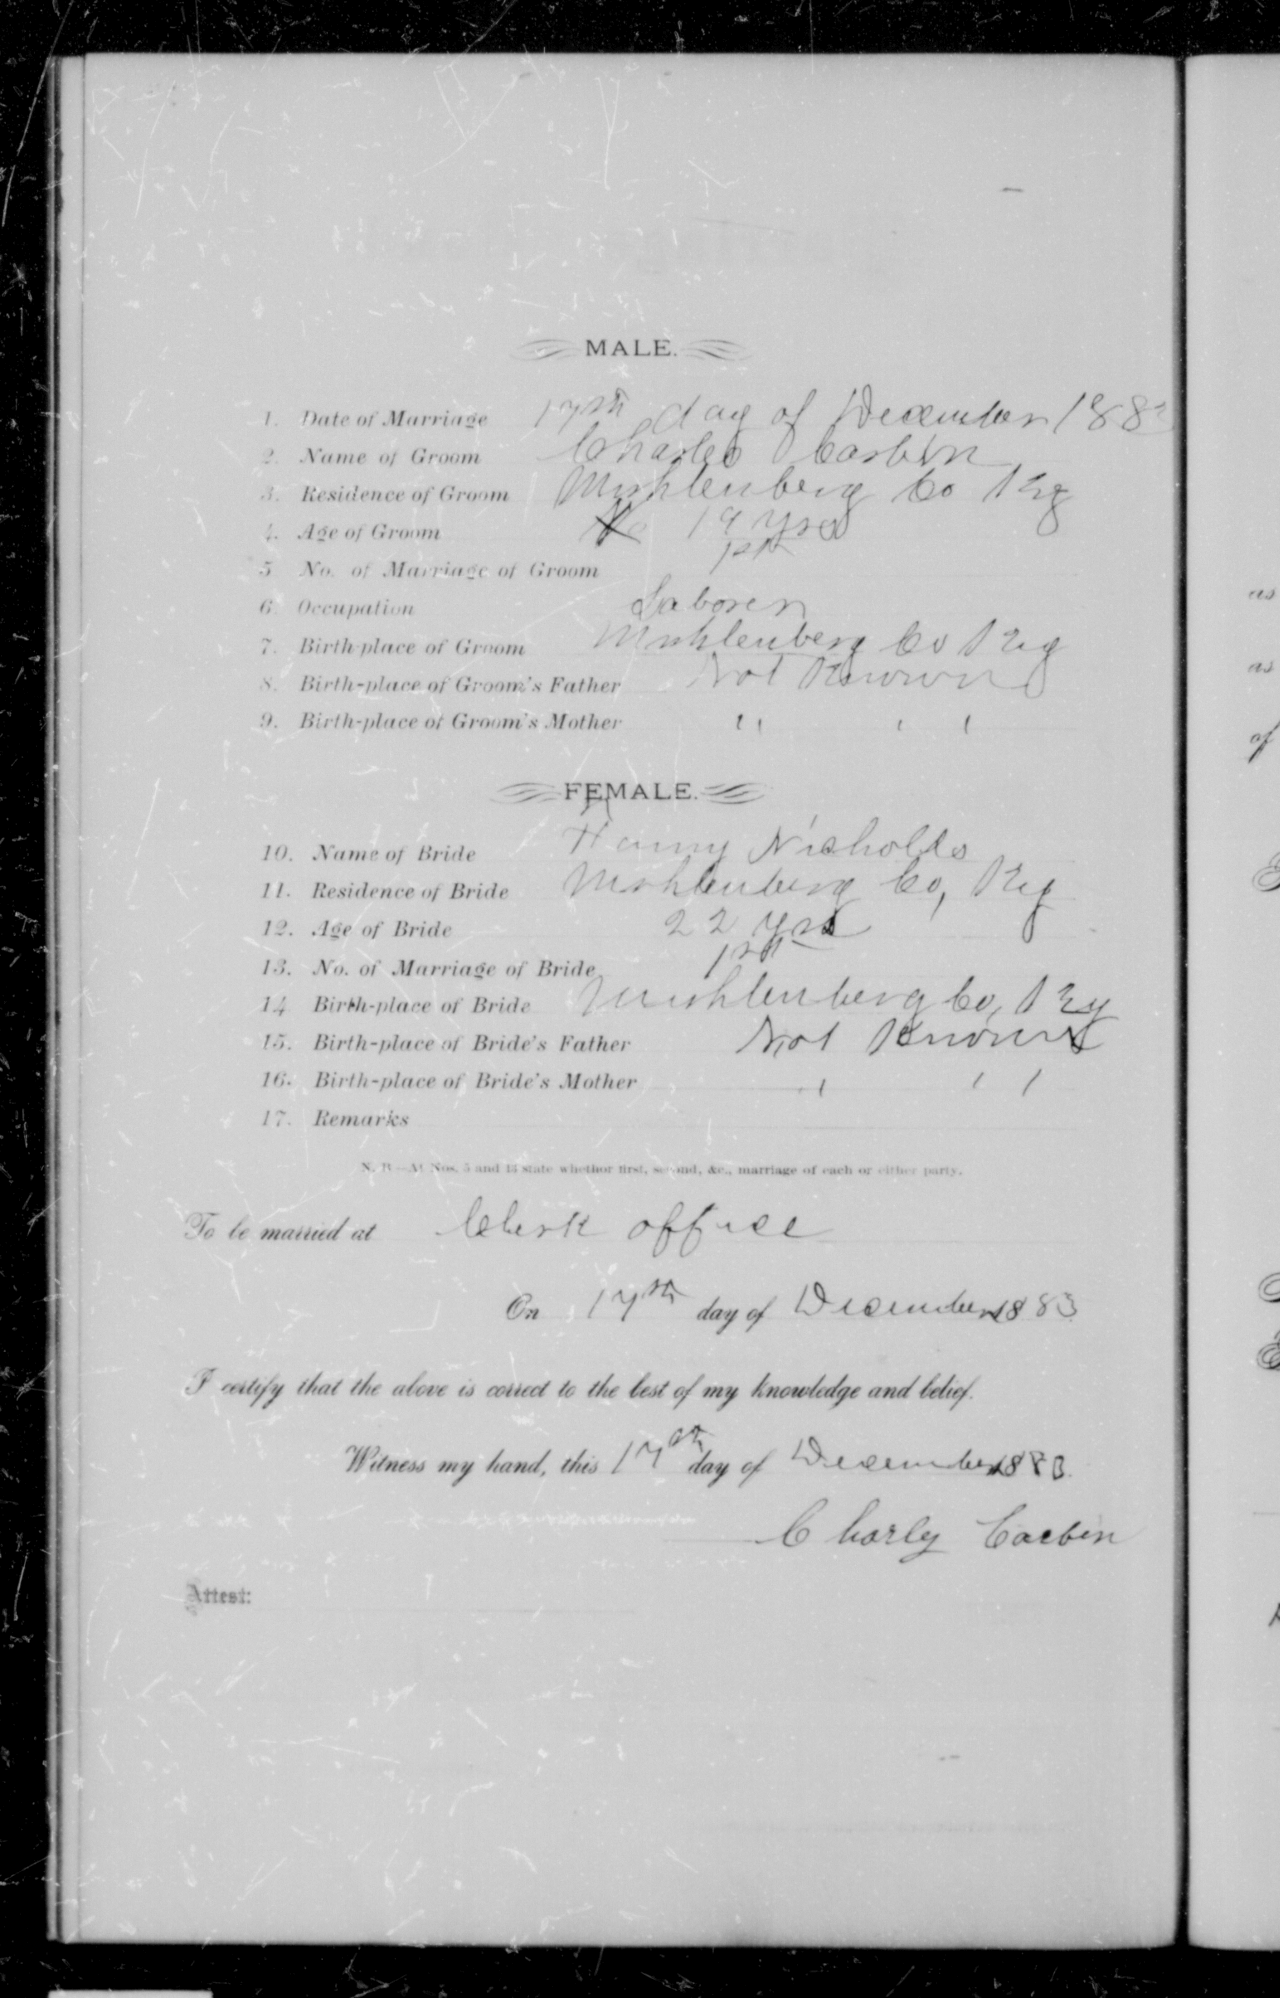 MALE.
1. Date of Marriage 17th day of December 1883
2. Name of Groom Charles Corbin
3. Residence of Groom Muhlenberg Co Ky
4. Age of Groom 19 yrs
5 No. of Marriage of Groom 1st
6. Occupation Laborer
7. Birth-place of Groom Muhlenberg Co Ky
8. Birth-place of Groom's Father Not Known
9. Birth-place of Groom's Mother " " "
FEMALE.
10. Name of Bride Nicholds
11. Residence of Bride Muhlenberg Co, Ky
12. Age of Bride 22 yrs
13. No. of Marriage of Bride 1st
14 Birth-place of Bride Muhlenberg Co, Ky
15. Birth-place of Bride's Father Not Known
16. Birth-place of Bride's Mother " " "
17. Remarks
N. B—At Nos. 5 and 13 state whether first, second, &c., marriage of each or either party.
To be married at Clerk office
On 17th day of December 1883
I certify that the above is correct to the best of my knowledge and belief.
Witness my hand, this 17th day of December 1883.
Charly Corbin
Attest:
as
as
of